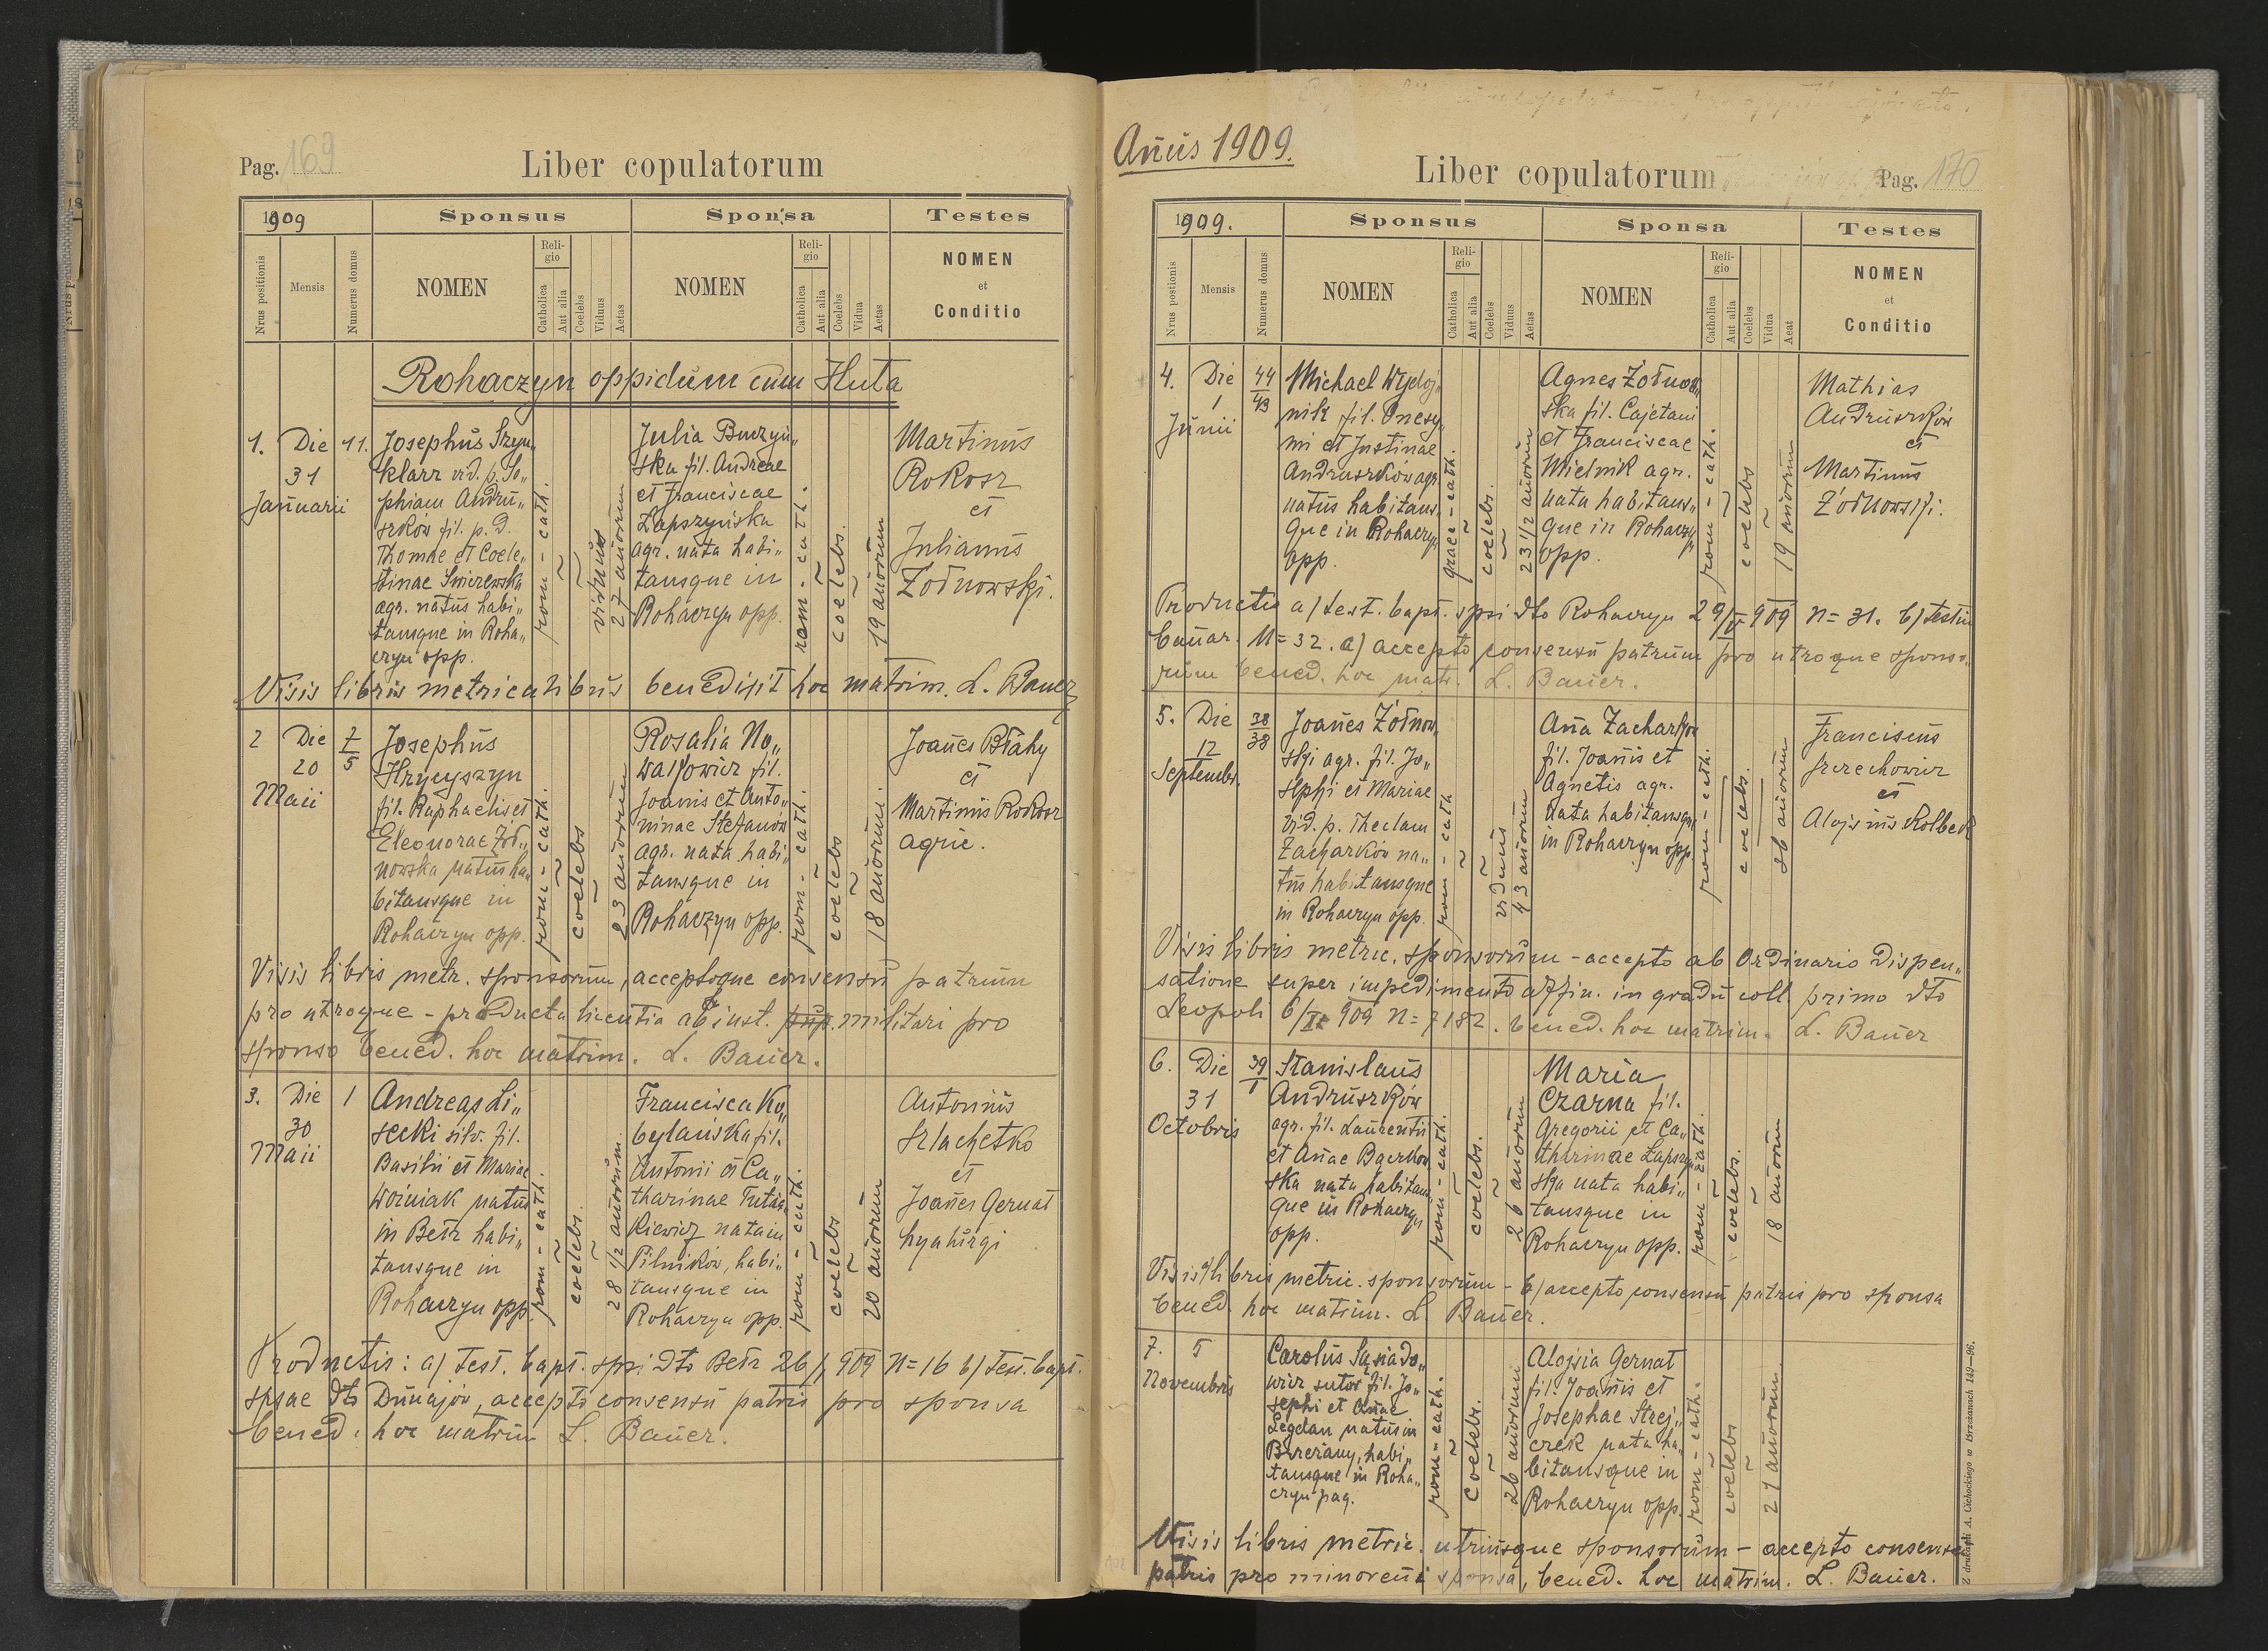 Pag. 169
Liber copulatorum
1909
Sponsus
Sponsa
Testes
Nrus positionis
Mensis
Numerus domus
NOMEN
Religio
Catholica
Aut alia
Coelebs
Viduus
Aetas
NOMEN
Religio
Catholica
Aut alia
Coelebs
Vidua
Aetas
NOMEN
et
Conditio
Rohaczyn oppidum cum Huta
1.
Die
31
Januarii
11.
Josephus Szyn„
klarz vid. p. So„
phiam Andru„
szków fil. p. D.
Thomae et Coele„
stinae
agr. natus habi„
tansque in Roha„
czyn opp.
rom - cath.
viduus
27 annorum
Julia Buczyń„
ska fil. Andreae
et Franciscae
Łapszyńska
agr. nata habi„
tansque in
Rohaczyn opp.
rom - cath.
coelebs.
19 annorum
Martinus
Rokosz
et
Julianus
Żołnowski.
Visis libris metricalibus benedixit hoc matrim. L. Bauer
2
Die
20
Maii
7
5
Josephus
Hrycyszyn
fil. Raphaelis et
Eleonorae Żoł„
nowska natus ha„
bitansque in
Rohaczyn opp.
rom - cath.
coelebs
23 annorum
Rosalia No„
wakowicz fil.
Joanis et Anto„
ninae Stefanów
agr. nata habi„
tansque in
Rohaczyn opp.
rom - cath.
coelebs
18 annorum.
Joañes Błahy
et
Martinus Rokosz
agric.
Visis libris metr. sponsorum, acceptoque consensu patrum
pro utroque - producta licentia ab inst. militari pro
sponso bened. hoc matrim. L. Bauer.
3.
Die
30
Maii
1
Andreas Li„
secki silv. fil.
Basilii et Mariae
Woźniak natus
in Betz habi„
tansque in
Rohaczyn opp.
rom - cath.
coelebs.
28 1/2 annorum.
Francisca Ko„
bylańska fil.
Antonii et Ca„
tharinae
nata in
Pilników, habi„
tansque in
Rohaczyn opp.
rom - cath.
coelebs
20 annorum
Antonius
Szlachetko
et
Joañes Gernat
Productis: a) test. bapt. spsi dto Betz 26/1 909 n=16 b) test. bapt.
spsae dto Dunajów, accepto consensu patris pro sponsa
bened. hoc matrim L. Bauer.
Añus 1909.
Liber copulatorum
Pag. 170
1909.
Sponsus
Sponsa
Testes
Nrus postionis
Mensis
Numerus domus
NOMEN
Religio
Catholica
Aut alia
Coelebs
Viduus
Aetas
NOMEN
Religio
Catholica
Aut alia
Coelebs
Vidua
Aeat
NOMEN
et
Conditio
4.
Die
1
Junii
44
43
Michael Wydoj„
nik fil. Onesy„
mi et Justinae
Andruszków agr.
natus habitans„
que in Rohaczyn
opp.
graec - cath.
coelebs.
23 1/2 annorum
Agnes Żołnow„
ska fil. Cajetani
et Franciscae
Mielnik agr.
nata habitans„
que in Rohaczyn
opp.
rom - cath.
coelebs
19 annorum
Mathias
Andruszków
et
Martinus
Żołnowski.
Productis a) test. bapt. spsi dto Rohaczyn 29/V 909 n=31. b) testim
bannor. N=32. a) accepto consensu patrum pro utroque sponso„
rum bened. hoc matr. L. Bauer.
5.
Die
12
Septembr.
38
38
Joañes Żołnow„
ski agr. fil. Jo„
sephi et Mariae
vid. p. Theclam
Zacharków na„
tus habitansque
in Rohaczyn opp.
rom - cath
viduus
43 annorum
Aña Zacharków
fil. Joañis et
Agnetis agr.
nata habitansque
in Rohaczyn opp.
rom - cath.
coelebs.
36 annorum
Franciscus
Szczechowicz
et
Alojsius Kolbeck
Visis libris metric. sponsorum - accepto ab Ordinario dispen„
satione super impedimento affin. in gradu coll. primo dto
Leopoli 6/IX 909 n=7182. bened. hoc matrim. L. Bauer
6.
Die
31
Octobris
39
1
Stanislaus
Andruszków
agr. fil. Laurentii
et Añae Baczkow
ska natu habitans
que in Rohaczyn
opp.
rom - cath.
coelebs.
26 annorum
Maria
Czarna fil.
Gregorii et Ca„
tharinae Łapszyń„
ska nata habi„
tansque in
Rohaczyn opp.
rom - cath.
coelebs.
18 annorum
Visis libris metric. sponsorum - b) accepto consensu patris pro sponsa
bened. hoc matrim. L. Bauer.
7.
5
Novembris
Carolus Sąsiado„
wicz sutor fil. Jo„
sephi et Añae
Legdan natus in
Brzeżany, habi„
tansque in Roha„
czyn pag.
rom - cath.
coelebs.
26 annorum
Alojsia Gernat
fil. Joañis et
Josephae Strej„
czek nata ha„
bitansque in
Rohaczyn opp.
rom - cath.
coelebs
21 annorum.
Visis libris metric. utriusque sponsorum - accepto consensu
patris pro minoreña sponsa, bened. hoc matrim. L. Bauer.
Z drukarni A. Cichockiego w Brzeżanach 149—96.